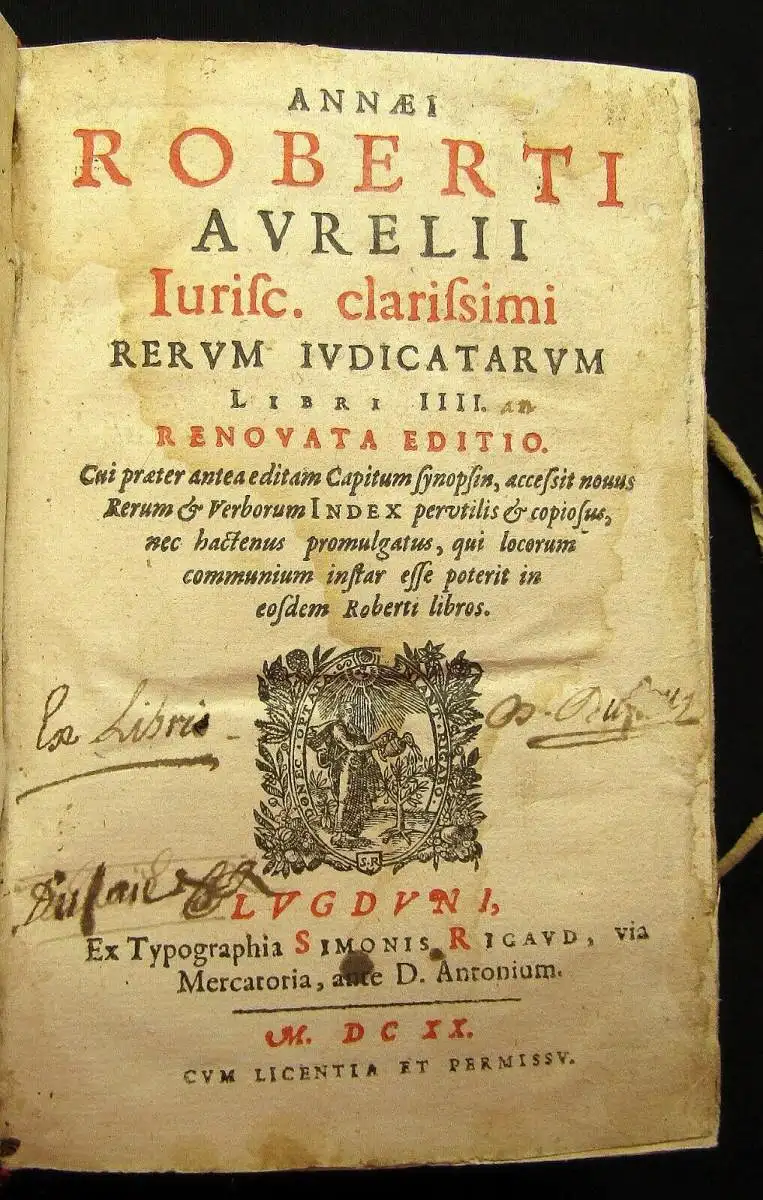 ANNÆI
ROBERTI
AVRELII
Iuriſc. clariſsimi
RERVM IVDICATARVM
LIBRI IIII.
RENOVATA EDITIO.
Cui præter antea editam Capitum ſynopſin, acceſsit nouus
Rerum & Verborum INDEX pervtilis & copioſus,
nec hactenus promulgatus, qui locorum
communium inſtar eſſe poterit in
eoſdem Roberti libros.
Ex Libris
DONEC OPTATA
S.R
LVGDVNI,
Ex Typographia SIMONIS RIGAVD, via
Mercatoria, ante D. Antonium.
M. DC XX.
CVM LICENTIA ET PERMISSV.